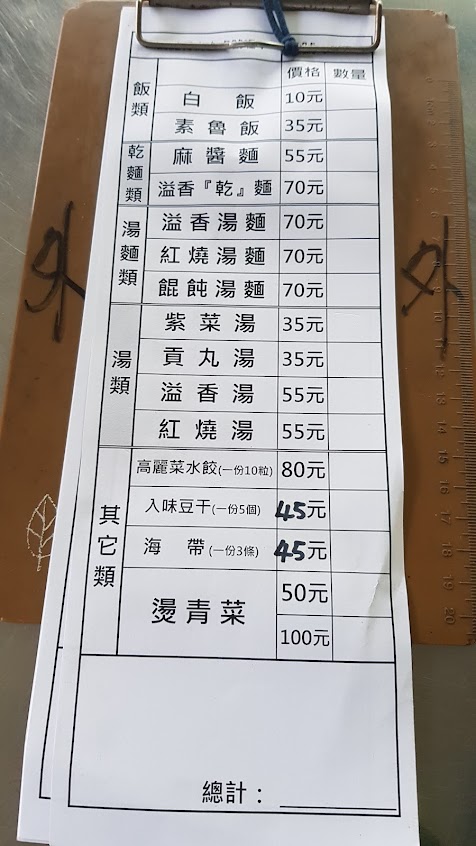 價格 數量
飯類
白飯 10元
素魯飯 35元
乾麵類
麻醬麵 55元
溢香『乾』麵 70元
湯麵類
溢香湯麵 70元
紅燒湯麵 70元
餛飩湯麵 70元
湯類
紫菜湯 35元
貢丸湯 35元
溢香湯 55元
紅燒湯 55元
其它類
高麗菜水餃(一份10粒) 80元
入味豆干(一份5個) 45元
海帶(一份3條) 45元
燙青菜 50元
100元
總計：
外
外